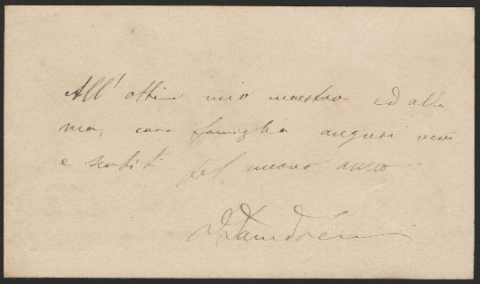 All' ottimo mio maestro ed alla
sua cara famiglia auguri veri
e sentiti pel nuovo anno